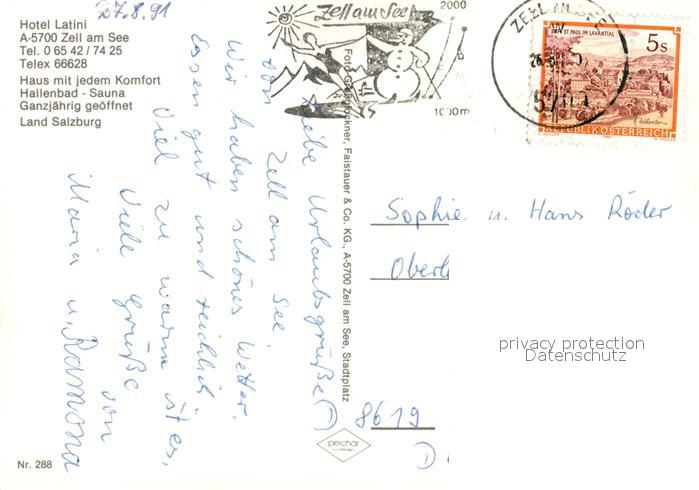 Hotel Latini
A-5700 Zell am See
Tel. 0 65 42 / 74 25
Telex 66628
Haus mit jedem Komfort
Hallenbad - Sauna
Ganzjährig geöffnet
Land Salzburg
27.8.91
Liebe Urlaubsgrüße
Zell am See.
Wir haben schönes Wetter,
Essen gut und reichlich.
Viel zu warm ist es,
Viele Grüße von
Maria u. Ramona
Nr. 288
Faistauer & Co. KG., A-5700 Zell am See, Stadtplatz
peichar
Zell am See
2000
1000 m
ZELL AM SEE
5700
STIFT ST. PAUL IM LAVANTTAL
5 S
REPUBLIK ÖSTERREICH
Sophie u. Hans Röder
Oberl
8619
D
privacy protection
Datenschutz